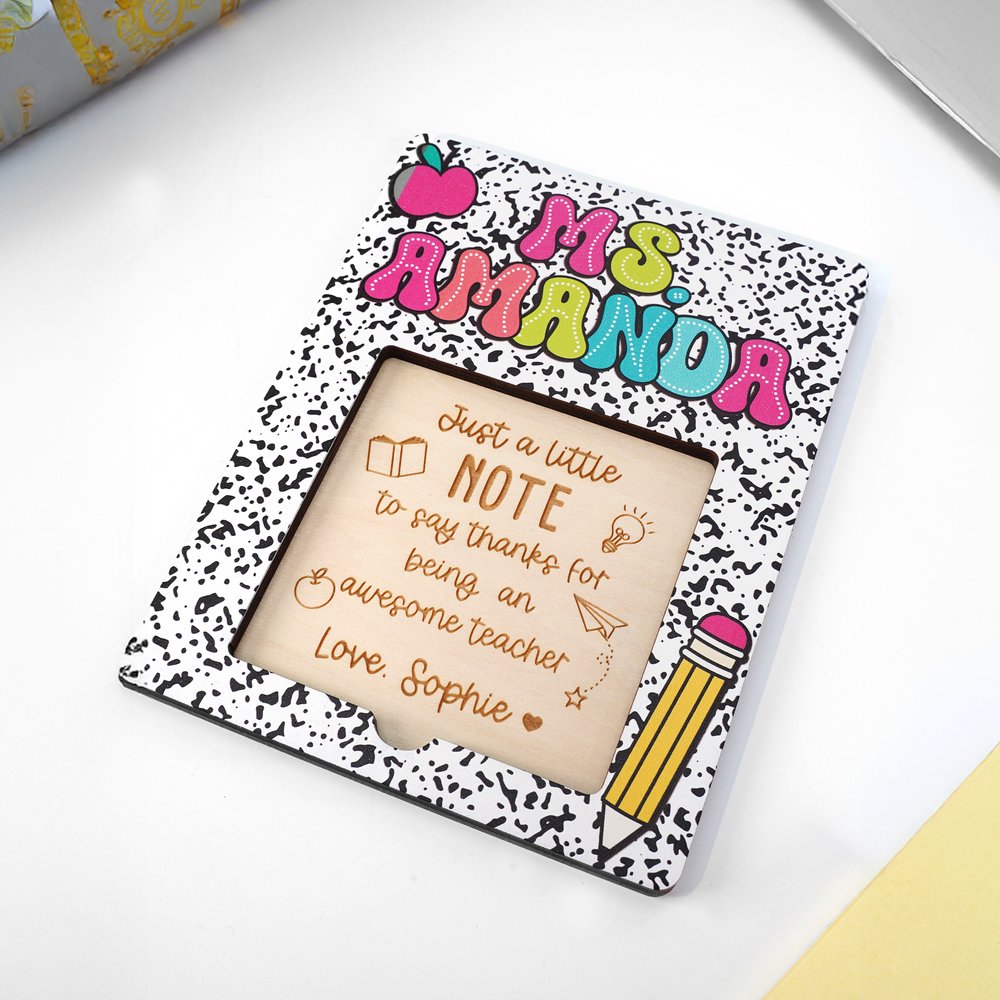 MS.
AMANDA
Just a little
NOTE
to say thanks for
being an
awesome teacher
Love, Sophie